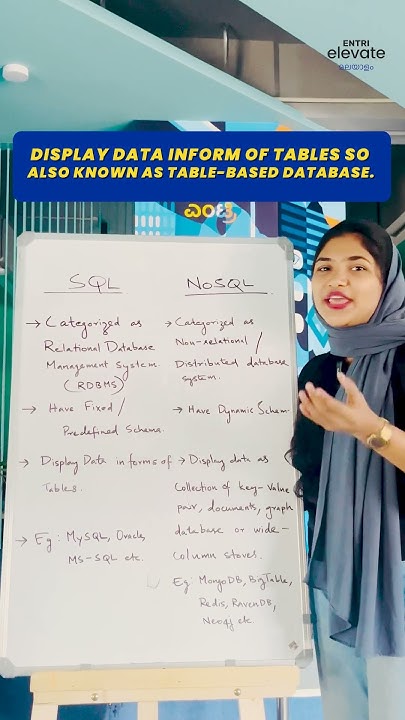 ENTRI
elevate
മലയാളം
DISPLAY DATA INFORM OF TABLES SO
ALSO KNOWN AS TABLE-BASED DATABASE.
SQL
→ Categorized as
Relational Database
Management System.
(RDBMS)
→ Have Fixed/
Predefined Schema.
→ Display Data in forms of
Tables.
→ Eg: MySQL, Oracle,
MS-SQL etc.
NoSQL
→ Categorized as
Non-relational/
Distributed database
system.
→ Have Dynamic Schem
→ Display data as
Collection of key-value
pair, documents, graph
database or wide-
column stores.
Eg: MongoDB, BigTable,
Redis, RavenDB,
Neo4j etc